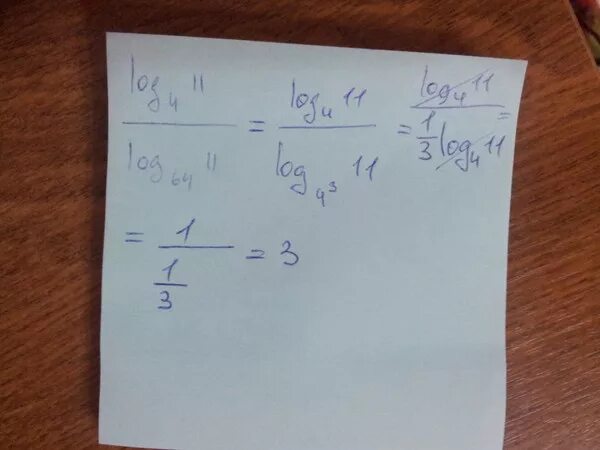 log₄ 11 / log₆₄ 11 = log₄ 11 / log₄³ 11 = log₄ 11 / 1/3 log₄ 11 =
= 1 / 1/3 = 3